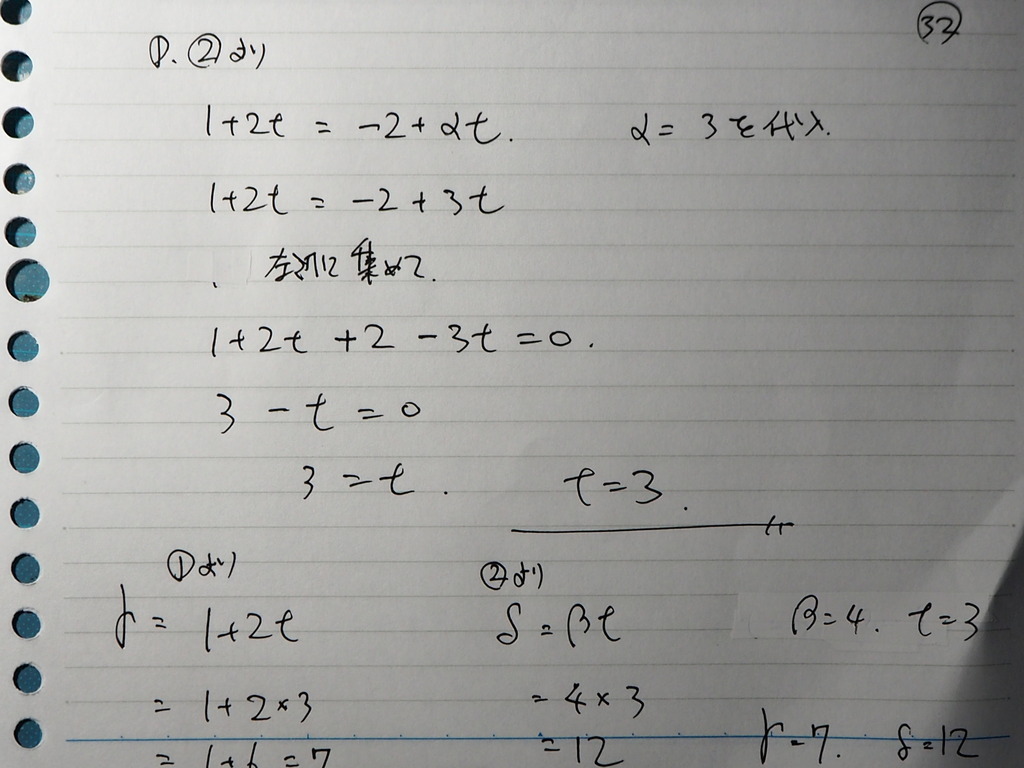 ㉜
①, ②より
1+2t = -2+αt. α= 3を代入.
1+2t = -2+3t
左辺に集めて.
1+2t +2 -3t =0.
3 -t =0
3 =t. t=3.
①より ②より
γ= 1+2t δ=βt β=4. t=3
= 1+2×3 = 4×3
= 1+6 =7 =12 γ=7. δ=12